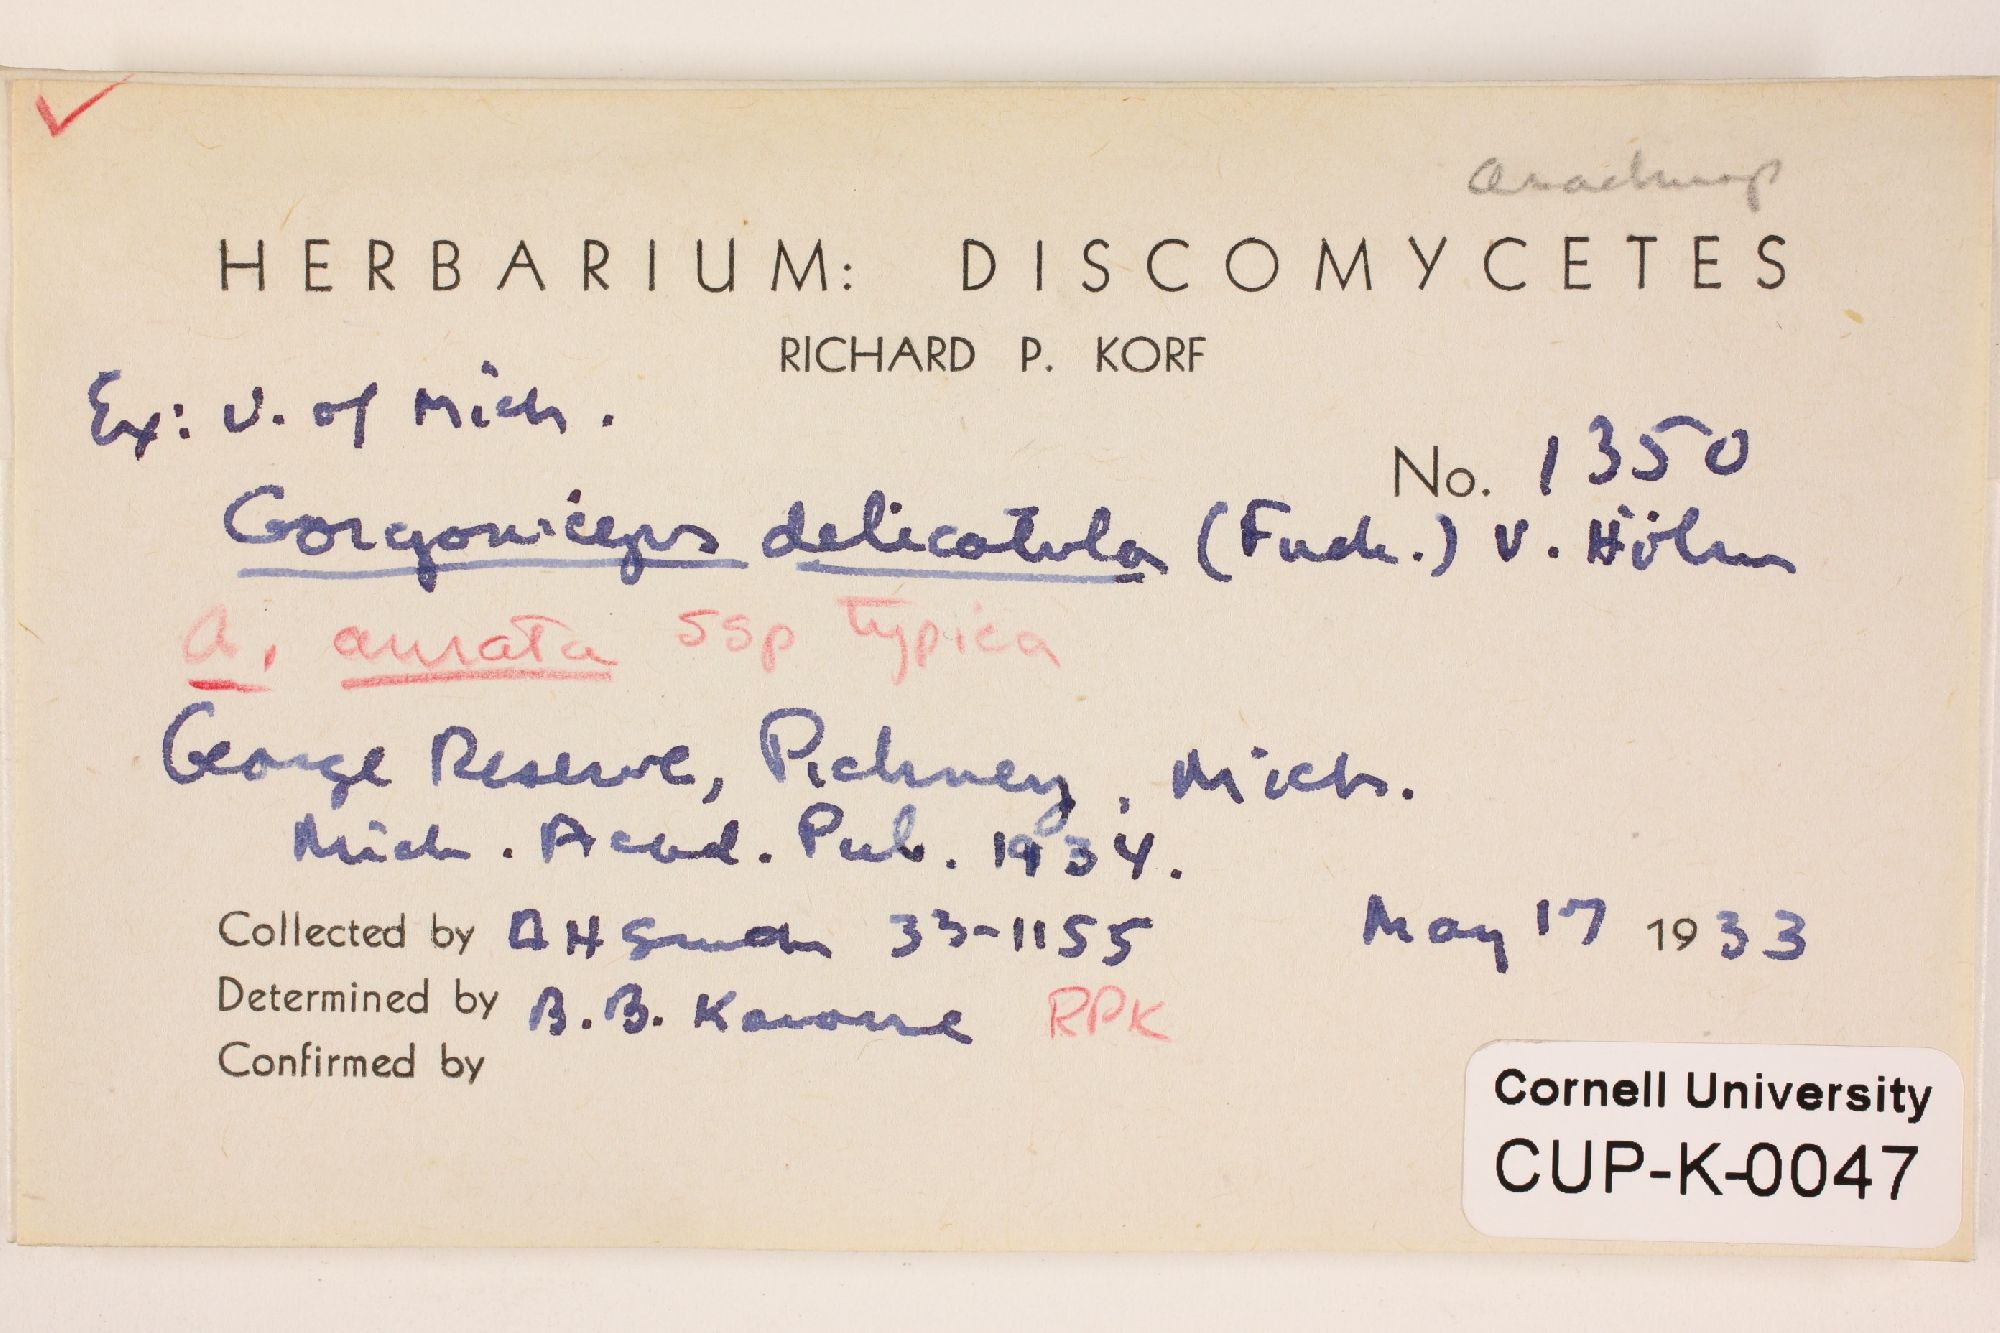 HERBARIUM: DISCOMYCETES
RICHARD P. KORF
Ex: U. of Mich.
No. 1350
Gorgoniceps delicatula (Fuck.) v. Höhn
A. aurata ssp typica
George Reserve, Pickney, Mich.
Mich. Acad. Pub. 1934.
Collected by AH Smith 33-1155 May 17 1933
Determined by B.B. Kanouse RPK
Confirmed by
Cornell University
CUP-K-0047